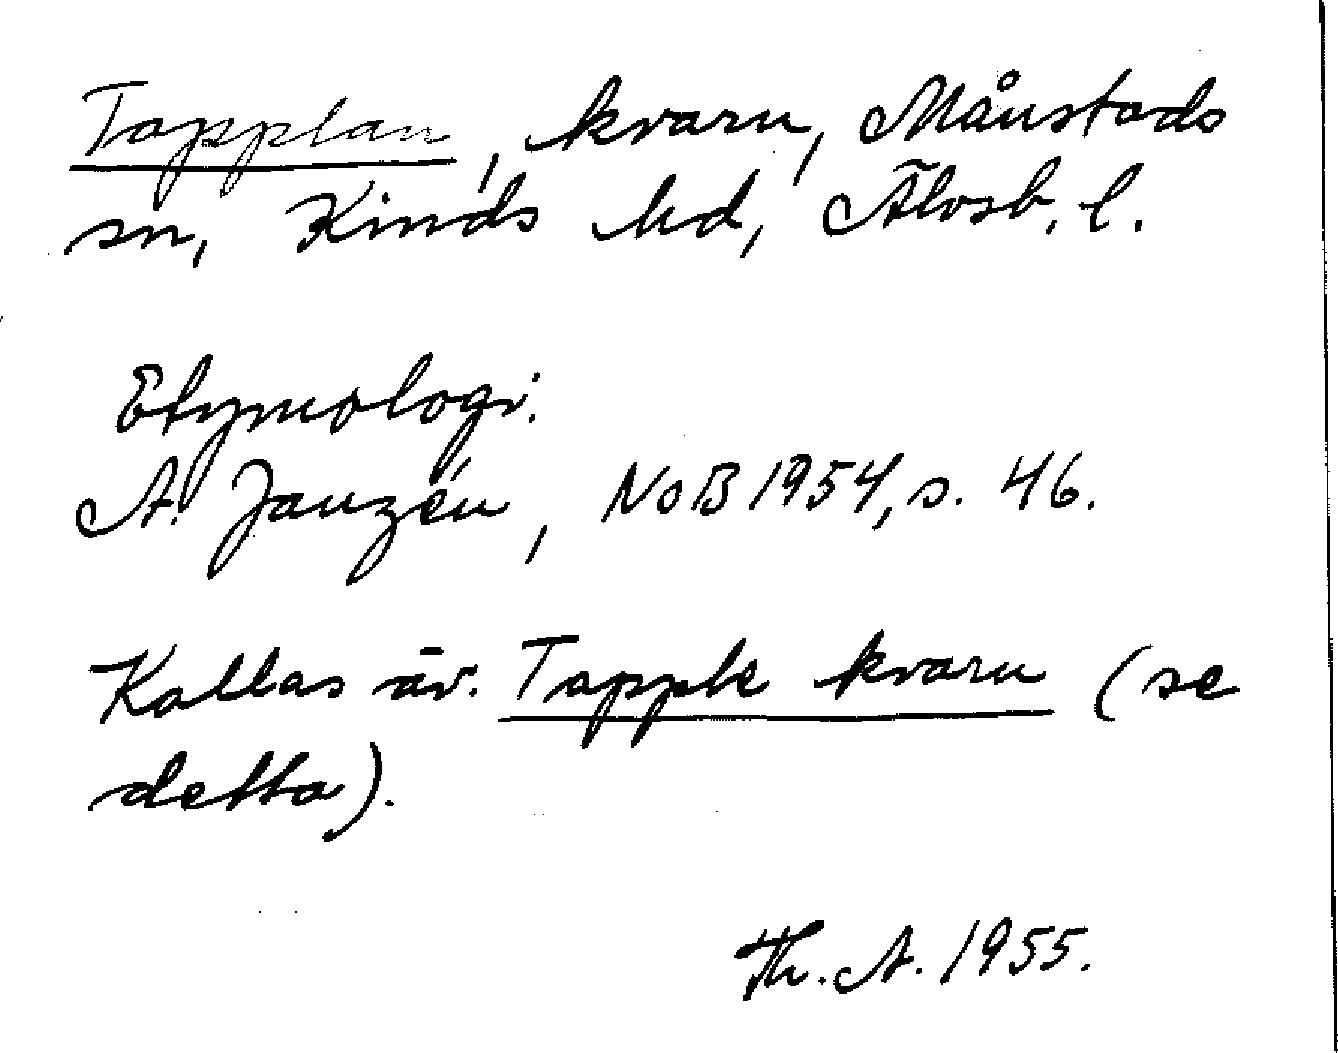 Tapplan, kvarn, Månstads
sn, Kinds hd, Älvsb. l.
Etymologi:
A. Janzén, NoB 1954, s. 46.
Kallas äv. Tapple kvarn (se
detta).
Th. A. 1955.